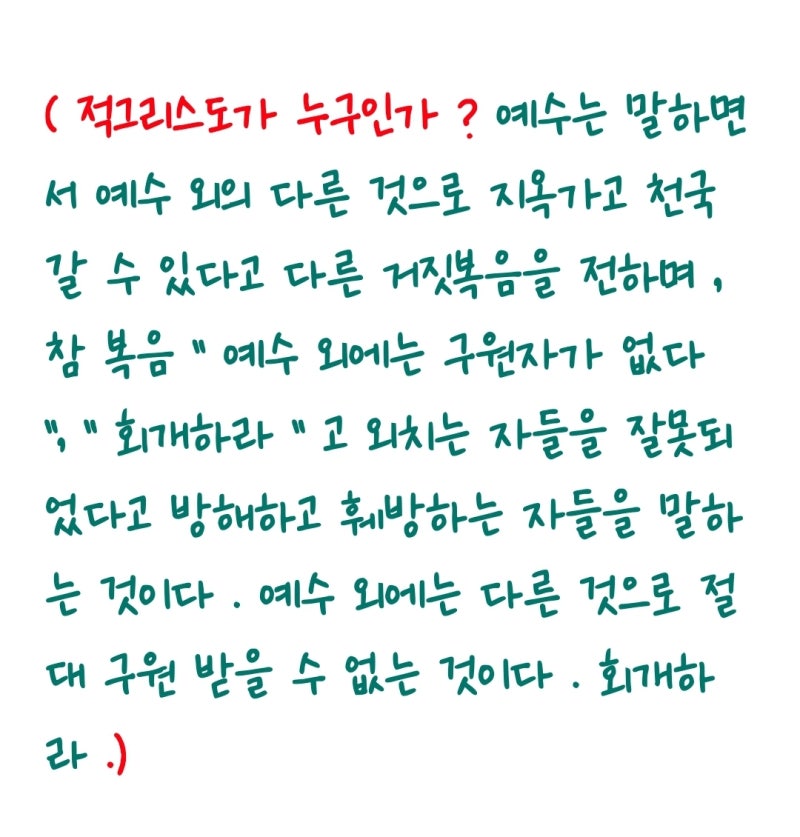 ( 적그리스도가 누구인가 ? 예수는 말하면
서 예수 외의 다른 것으로 지옥가고 천국
갈 수 있다고 다른 거짓복음을 전하며 ,
참 복음 " 예수 외에는 구원자가 없다
", " 회개하라 " 고 외치는 자들을 잘못되
었다고 방해하고 훼방하는 자들을 말하
는 것이다 . 예수 외에는 다른 것으로 절
대 구원 받을 수 없는 것이다 . 회개하
라 .)